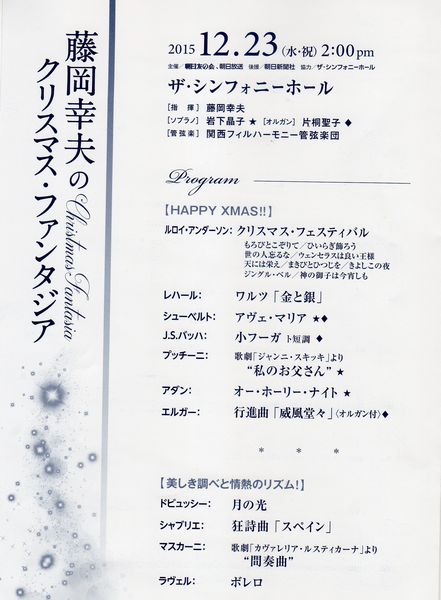 藤岡幸夫の
クリスマス・ファンタジア
Christmas Fantasia
2015 12.23 (水・祝) 2:00pm
主催/朝日友の会、朝日放送 後援/朝日新聞社 協力/ザ・シンフォニーホール
ザ・シンフォニーホール
[指 揮] 藤岡幸夫
[ソプラノ] 岩下晶子 ★ [オルガン] 片桐聖子 ◆
[管弦楽] 関西フィルハーモニー管弦楽団
Program
【HAPPY XMAS!!】
ルロイ・アンダーソン: クリスマス・フェスティバル
もろびとこぞりて/ひいらぎ飾ろう
世の人忘るな/ウェンセラスは良い王様
天には栄え/まきびとひつじを/きよしこの夜
ジングル・ベル/神の御子は今宵しも
レハール: ワルツ「金と銀」
シューベルト: アヴェ・マリア ★◆
J.S.バッハ: 小フーガ ト短調 ◆
プッチーニ: 歌劇「ジャンニ・スキッキ」より
“私のお父さん” ★
アダン: オー・ホーリー・ナイト ★
エルガー: 行進曲「威風堂々」〈オルガン付〉◆
* * *
【美しき調べと情熱のリズム!】
ドビュッシー: 月の光
シャブリエ: 狂詩曲「スペイン」
マスカーニ: 歌劇「カヴァレリア・ルスティカーナ」より
“間奏曲”
ラヴェル: ボレロ